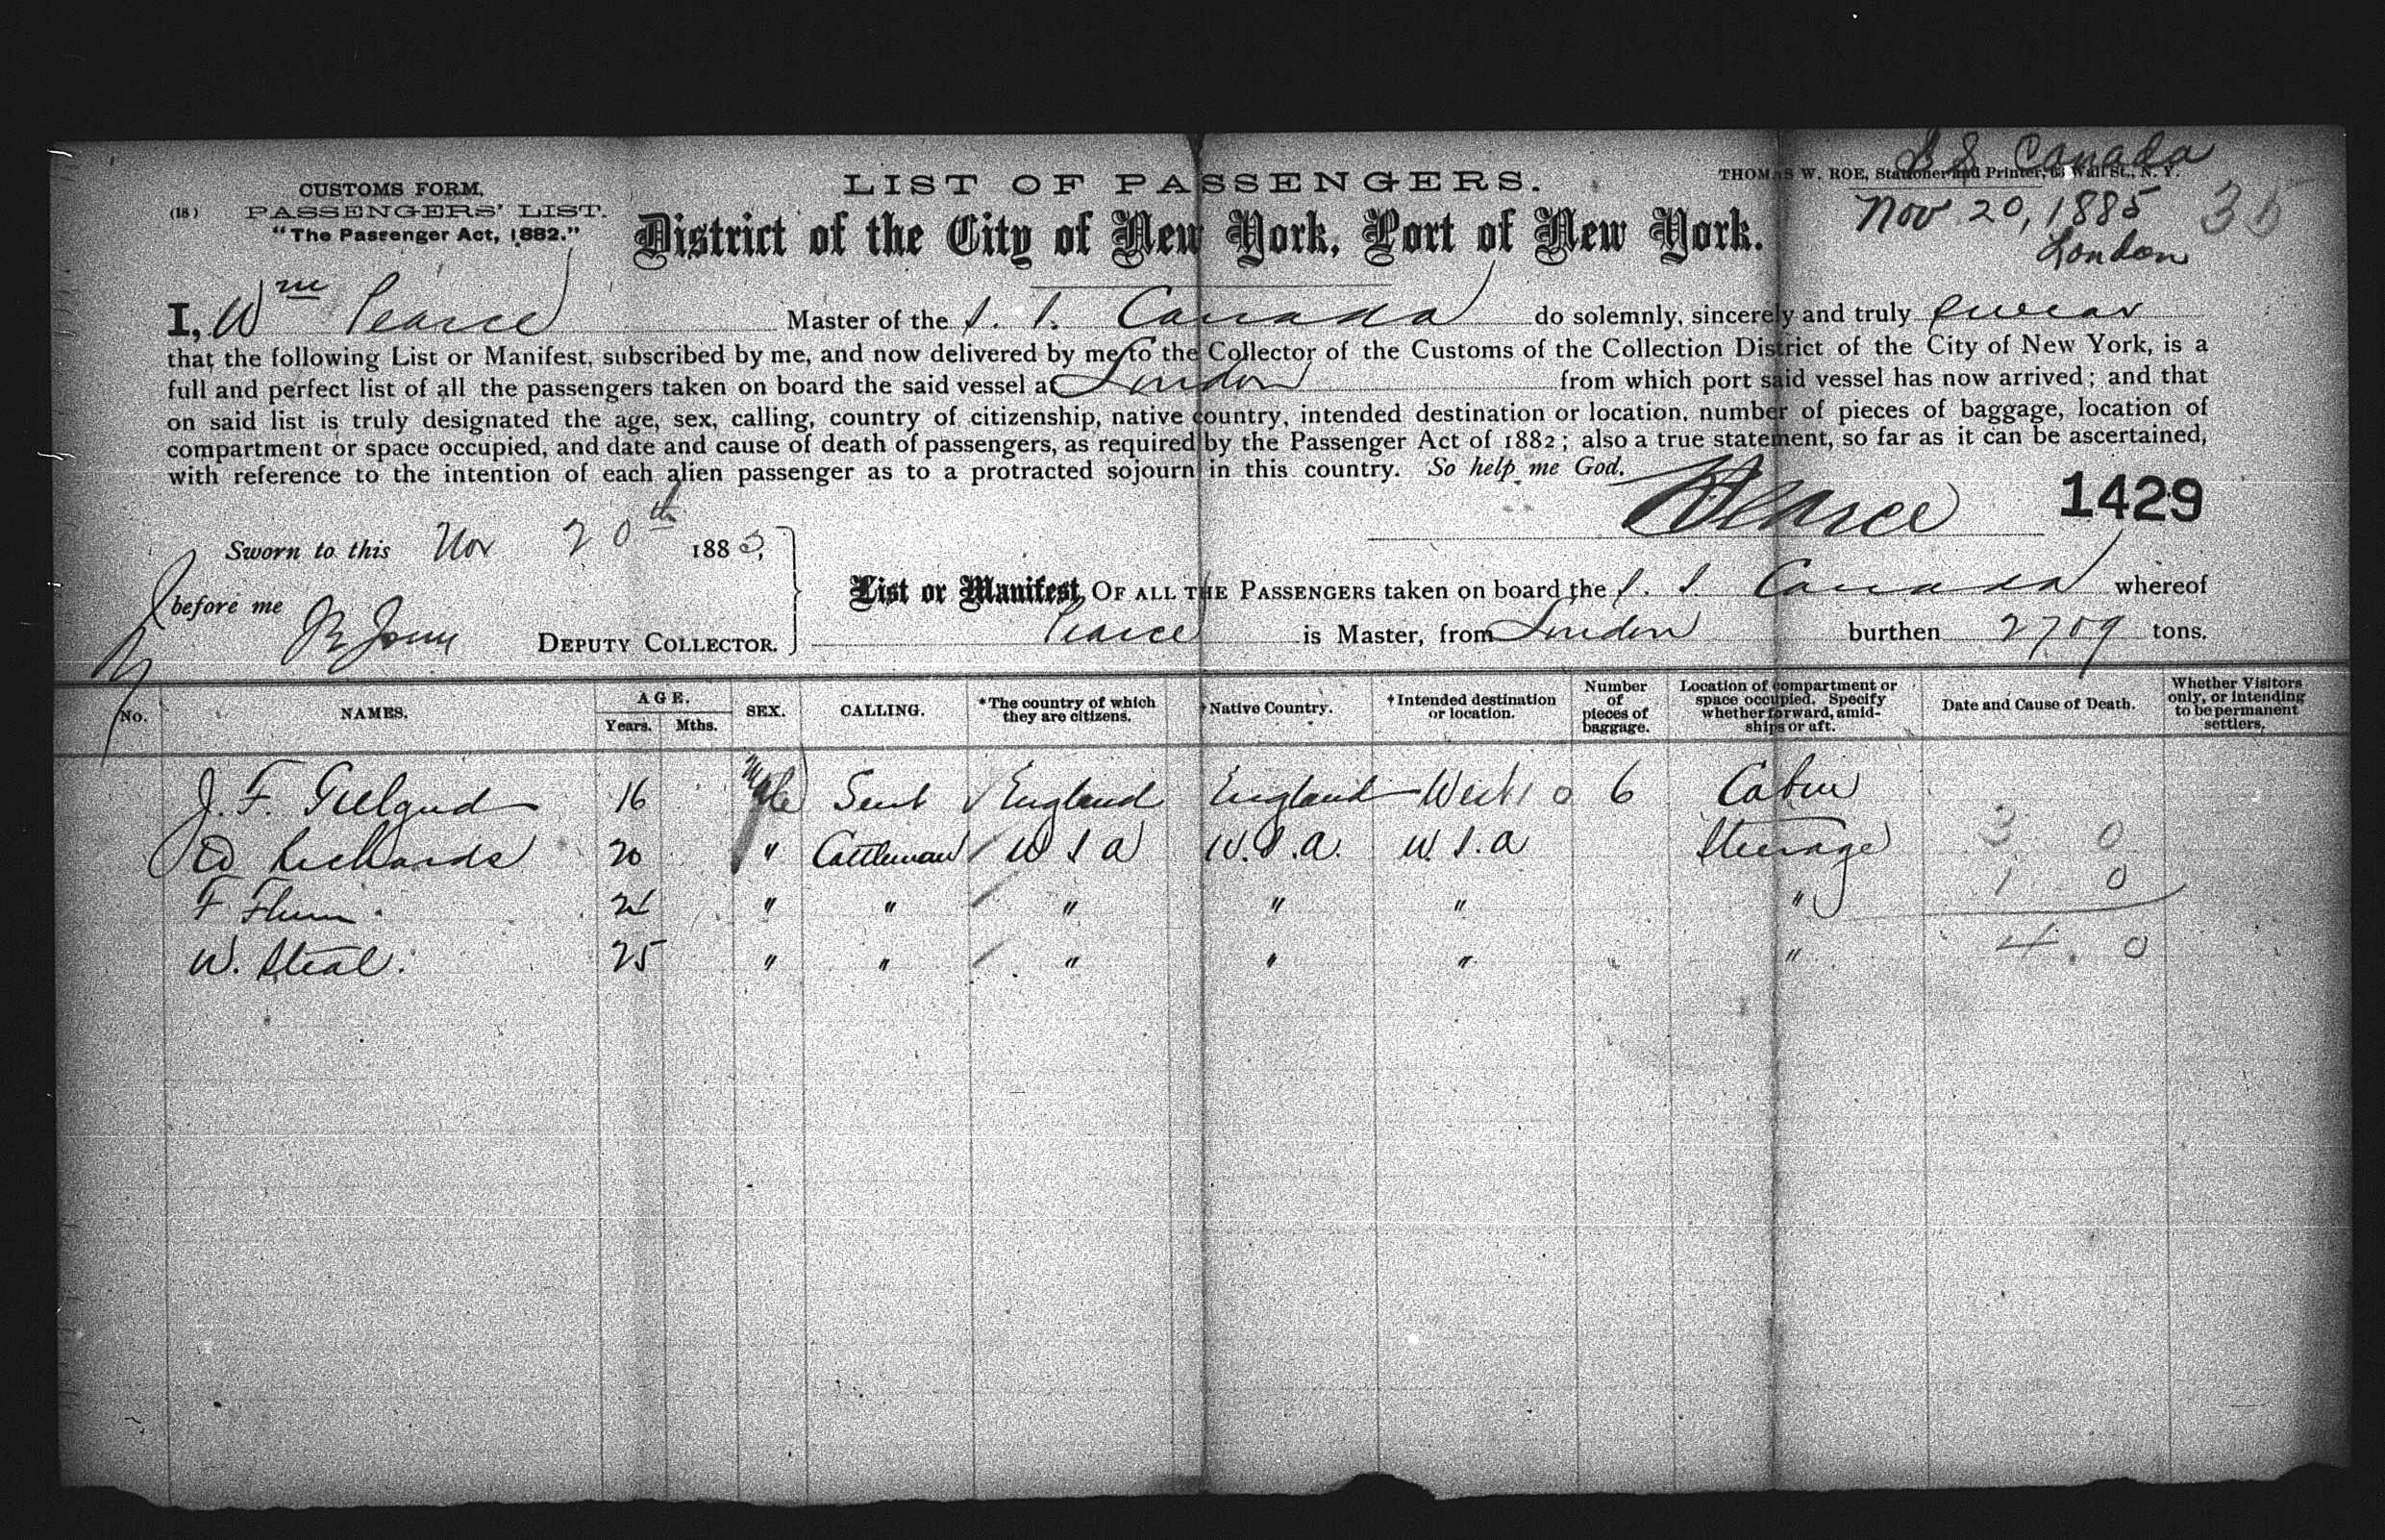 S S Canada
LIST OF PASSENGERS.
THOMAS W. ROE, Stationer and Printer, 63 Wall St., N. Y.
CUSTOMS FORM.
(18) PASSENGERS' LIST.
"The Passenger Act, 1882."
District of the City of New York, Port of New York.
Nov 20, 1885
London
I, Wm Pearce Master of the s. s. Canada do solemnly, sincerely and truly swear
that the following List or Manifest, subscribed by me, and now delivered by me to the Collector of the Customs of the Collection District of the City of New York, is a
full and perfect list of all the passengers taken on board the said vessel at London from which port said vessel has now arrived; and that
on said list is truly designated the age, sex, calling, country of citizenship, native country, intended destination or location, number of pieces of baggage, location of
compartment or space occupied, and date and cause of death of passengers, as required by the Passenger Act of 1882; also a true statement, so far as it can be ascertained,
with reference to the intention of each alien passenger as to a protracted sojourn in this country. So help me God.
Pearce 1429
Sworn to this Nov 20th 1885,
before me
DEPUTY COLLECTOR.
List or Manifest, OF ALL THE PASSENGERS taken on board the s. s. Canada whereof
Pearce is Master, from London burthen 2709 tons.
No. NAMES. AGE. Years. Mths. SEX. CALLING. *The country of which they are citizens. *Native Country. †Intended destination or location. Number of pieces of baggage. Location of compartment or space occupied. Specify whether forward, amidships or aft. Date and Cause of Death. Whether Visitors only, or intending to be permanent settlers.
J. F. 16 Male Gent England England 6 Cabin
Ed Richards 20 " Cattleman U S A U.S.A. U.S.A Steerage 3 0
F " " " " " " 1 0
W. Steal. 25 " " " " " " 4 0